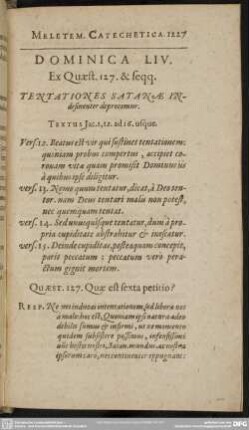 MELETEM. CATECHETICA. 1227
DOMINICA LIV.
Ex Quæst. 127. & seqq.
TENTATIONES SATANÆ IN-
desinenter deprecemur.
TEXTUS Jac. 1, 12. ad 16. usque.
Vers. 12. Beatus est vir qui sustinet tentationem:
quoniam probus compertus, accipiet co-
ronam vitæ quam promisit Dominus iis
à quibus ipse diligitur.
vers. 13. Nemo quum tentatur, dicat, à Deo ten-
tor. nam Deus tentari malis non potest,
nec quemquam tentat.
vers. 14. Sed unusquisque tentatur, dum à pro-
pria cupiditate abstrahitur & inescatur.
vers. 15. Deinde cupiditas, postquam concepit,
parit peccatum: peccatum verò pera-
ctum gignit mortem.
QUÆST. 127. Quæ est sexta petitio?
RESP. Ne nos inducas in tentationem, sed libera nos
à malo: hoc est, Quoniam ipsi natura adeo
debiles sumus & infirmi, ut ne momento
quidem subsistere possimus, infensissimi
hostes nostri, Satan, mundus, ac nostra
ipsorum caro, nos continenter oppugnant: